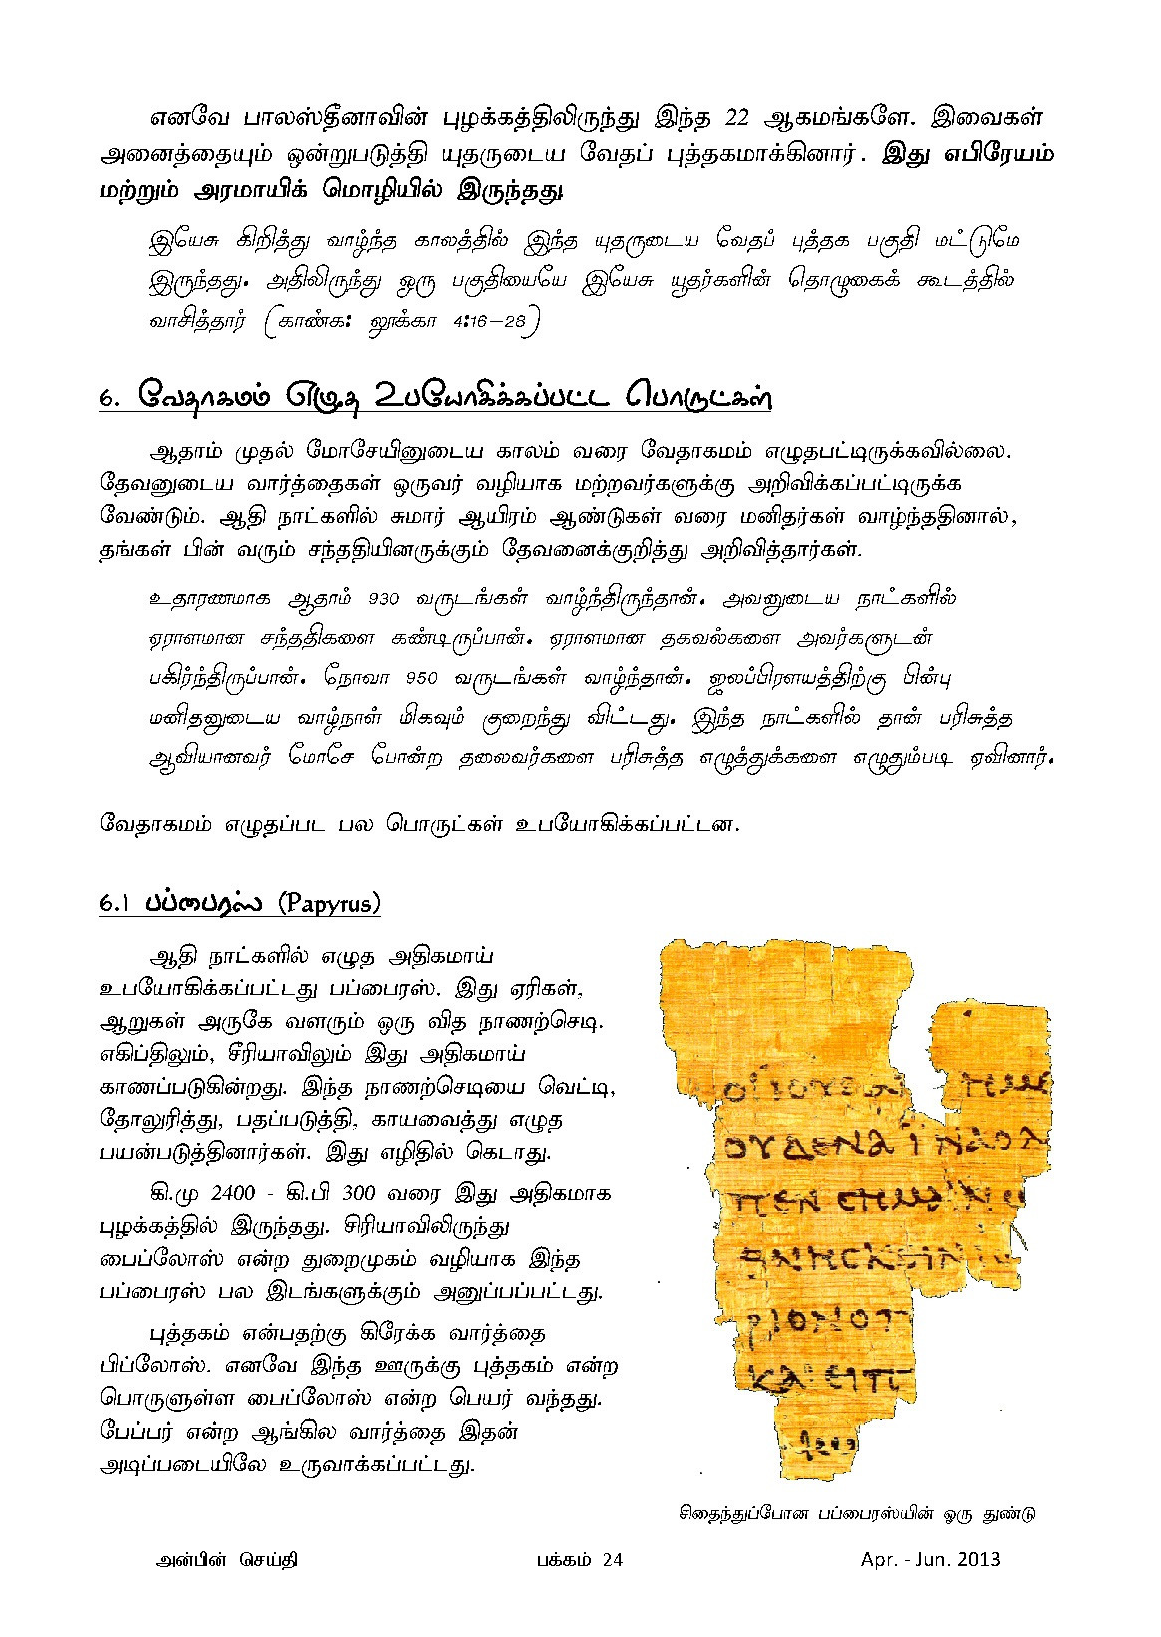 எனவே பாலஸ்தீனாவின் புழக்கத்திலிருந்து இந்த 22 ஆகமங்களே. இவைகள்
அனைத்தையும் ஒன்றுபடுத்தி யுதருடைய வேதப் புத்தகமாக்கினார். இது எபிரேயம்
மற்றும் அரமாயிக் மொழியில் இருந்தது.
இயேசு கிறித்து வாழ்ந்த காலத்தில் இந்த யுதருடைய வேதப் புத்தக பகுதி மட்டுமே
இருந்தது. அதிலிருந்து ஒரு பகுதியையே இயேசு யூதர்களின் தொழுகைக் கூடத்தில்
வாசித்தார் (காண்க: லூக்கா 4:16–28)
6. வேதாகமம் எழுத உபயோகிக்கப்பட்ட பொருட்கள்
ஆதாம் முதல் மோசேயினுடைய காலம் வரை வேதாகமம் எழுதபட்டிருக்கவில்லை.
தேவனுடைய வார்த்தைகள் ஒருவர் வழியாக மற்றவர்களுக்கு அறிவிக்கப்பட்டிருக்க
வேண்டும். ஆதி நாட்களில் சுமார் ஆயிரம் ஆண்டுகள் வரை மனிதர்கள் வாழ்ந்ததினால்,
தங்கள் பின் வரும் சந்ததியினருக்கும் தேவனைக்குறித்து அறிவித்தார்கள்.
உதாரணமாக ஆதாம் 930 வருடங்கள் வாழ்ந்திருந்தான். அவனுடைய நாட்களில்
ஏராளமான சந்ததிகளை கண்டிருப்பான். ஏராளமான தகவல்களை அவர்களுடன்
பகிர்ந்திருப்பான். நோவா 950 வருடங்கள் வாழ்ந்தான். ஜலப்பிரளயத்திற்கு பின்பு
மனிதனுடைய வாழ்நாள் மிகவும் குறைந்து விட்டது. இந்த நாட்களில் தான் பரிசுத்த
ஆவியானவர் மோசே போன்ற தலைவர்களை பரிசுத்த எழுத்துக்களை எழுதும்படி ஏவினார்.
வேதாகமம் எழுதப்பட பல பொருட்கள் உபயோகிக்கப்பட்டன.
6.1 பப்பைரஸ் (Papyrus)
ஆதி நாட்களில் எழுத அதிகமாய்
உபயோகிக்கப்பட்டது பப்பைரஸ். இது ஏரிகள்,
ஆறுகள் அருகே வளரும் ஒரு வித நாணற்செடி.
எகிப்திலும், சீரியாவிலும் இது அதிகமாய்
காணப்படுகின்றது. இந்த நாணற்செடியை வெட்டி,
தோலுரித்து, பதப்படுத்தி, காயவைத்து எழுத
பயன்படுத்தினார்கள். இது எழிதில் கெடாது.
கி.மு 2400 - கி.பி 300 வரை இது அதிகமாக
புழக்கத்தில் இருந்தது. சிரியாவிலிருந்து
பைப்லோஸ் என்ற துறைமுகம் வழியாக இந்த
பப்பைரஸ் பல இடங்களுக்கும் அனுப்பப்பட்டது.
புத்தகம் என்பதற்கு கிரேக்க வார்த்தை
பிப்லோஸ். எனவே இந்த ஊருக்கு புத்தகம் என்ற
பொருளுள்ள பைப்லோஸ் என்ற பெயர் வந்தது.
பேப்பர் என்ற ஆங்கில வார்த்தை இதன்
அடிப்படையிலே உருவாக்கப்பட்டது.
சிதைந்துப்போன பப்பைரஸ்யின் ஒரு துண்டு
அன்பின் செய்தி பக்கம் 24 Apr. - Jun. 2013